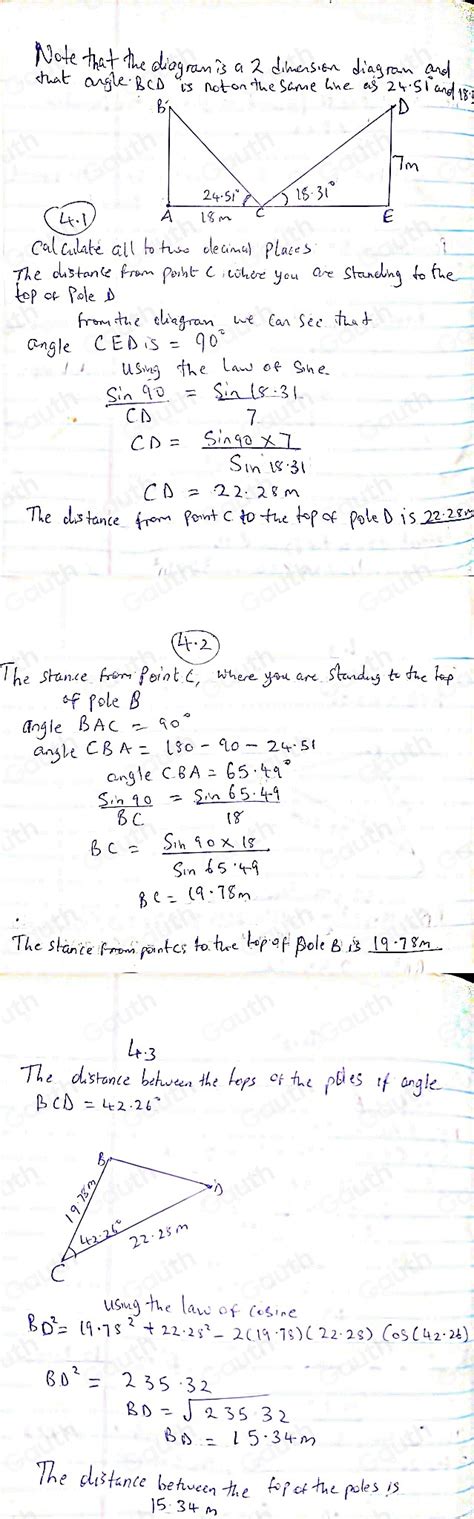 Note that the diagram is a 2 dimension diagram and
that angle BCD is not on the same line as 24.51° and 18.3
B
D
7m
24.51°
18.31°
A
18m
C
E
4.1
Calculate all to two decimal places
The distance from point C, where you are standing to the
top of Pole D
from the diagram we can see that
angle CED is = 90°
Using the Law of Sine
Sin 90 = Sin 18.31
CD 7
CD = Sin 90 × 7
Sin 18.31
CD = 22.28m
The distance from point C to the top of pole D is 22.28m
4.2
The stance from point C, where you are standing to the top
of pole B
angle BAC = 90°
angle CBA = 180 - 90 - 24.51
angle CBA = 65.49°
Sin 90 = Sin 65.49
BC 18
BC = Sin 90 × 18
Sin 65.49
BC = 19.78m
The stance from point cs to the top of pole B is 19.78m
4.3
The distance between the tops of the poles if angle
BCD = 42.26°
B
D
19.78m
42.26°
22.28m
C
using the law of cosine
BD² = 19.78² + 22.28² - 2(19.78)(22.28) Cos(42.26)
BD² = 235.32
BD = √235.32
BD = 15.34m
The distance between the top of the poles is
15.34m